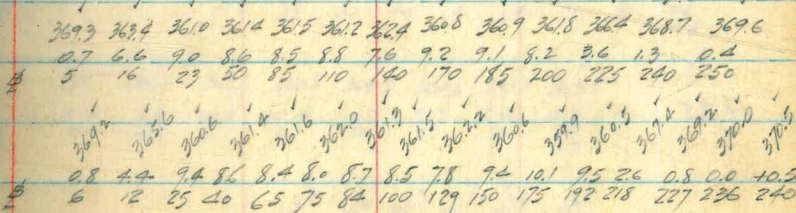 369.3 363.4 361.0 361.4 361.5 361.2 362.4 360.8 360.9 361.8 366.4 368.7 369.6
0.7 6.6 9.0 8.6 8.5 8.8 7.6 9.2 9.1 8.2 3.6 1.3 0.4
5 16 23 50 85 110 140 170 185 200 225 240 250
369.2 365.6 360.6 361.4 361.6 362.0 361.3 361.5 362.2 360.6 359.9 360.5 367.4 369.2 370.0 370.5
0.8 4.4 9.4 8.6 8.4 8.0 8.7 8.5 7.8 9.4 10.1 9.5 2.6 0.8 0.0 +0.5
6 12 25 40 65 75 84 100 129 150 175 192 218 227 236 240